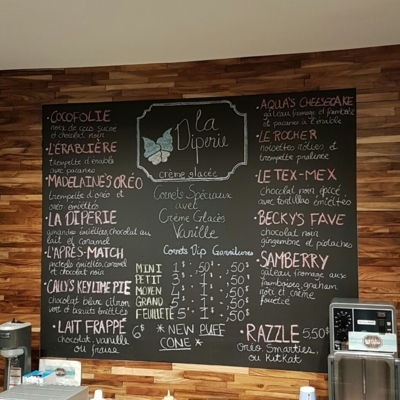 • COCOFOLIE
noix de coco sucrée
et chocolat noir
• L'ÉRABLIÈRE
trempette d'érable
avec pacanes
• MADELAINE'S ORÉO
trempette d'oréo et
oréo émiettés
• LA DIPERIE
amandes émiettées, chocolat au
lait et caramel
• L'APRÈS-MATCH
pretzels émiettés, caramel
et chocolat noir
• CALLY'S KEYLIME PIE
chocolat blanc citron
vert et biscuits émiettés
• LAIT FRAPPÉ 6$
chocolat, vanille
ou fraise
la
Diperie
crème glacée
Cornets Spéciaux
avec
Crème Glacée
Vanille
Cornets Dip Garnitures
MINI 1$ .50$ .50$
PETIT
MOYEN
GRAND
FEUILLETÉ 5$
* NEW PUFF
CONE *
• AQUA'S CHEESECAKE
gâteau fromage et framboise
et pacanes à l'érable
• LE ROCHER
noisettes rôties et
trempette praliné
• LE TEX-MEX
chocolat noir épicé,
avec tortillas émiettées
• BECKY'S FAVE
chocolat noir
gingembre et pistaches
• SAMBERRY
gâteau fromage aux
framboises, graham,
noix et crème
fouettée
• RAZZLE 5,50$
Oreo, Smarties,
ou KitKat